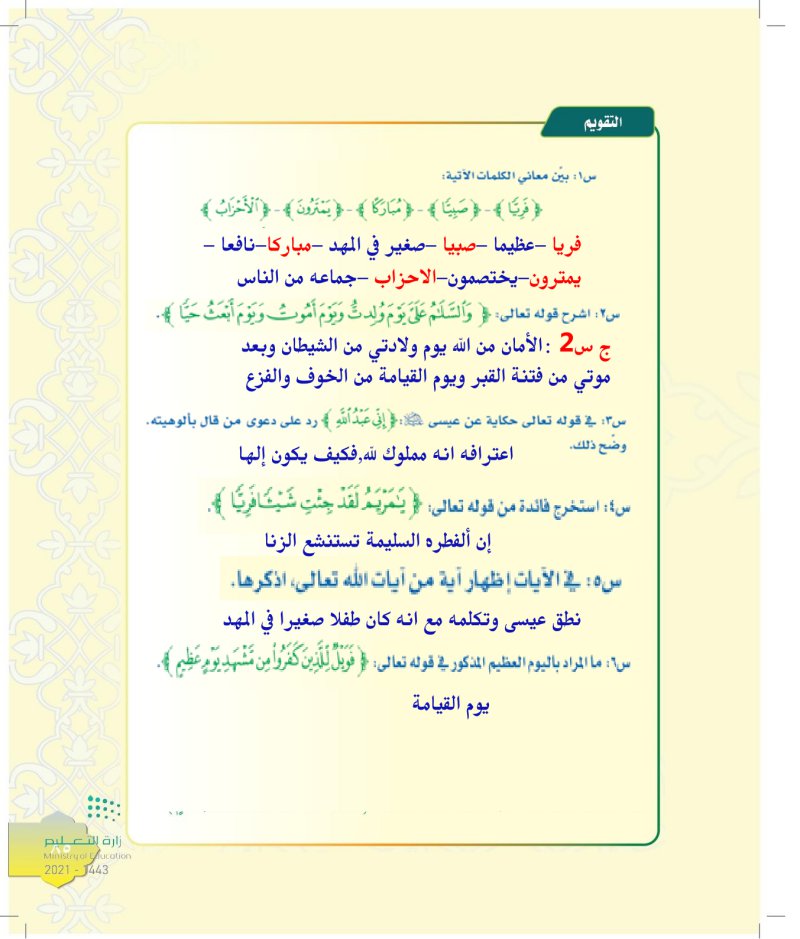 التقويم
س١: بيّن معاني الكلمات الآتية:
﴿ فَرِيًّا ﴾ - ﴿ صَبِيًّا ﴾ - ﴿ مُبَارَكًا ﴾ - ﴿ يَمْتَرُونَ ﴾ - ﴿ ٱلْأَحْزَابُ ﴾
فريا –عظيما –صبيا –صغير في المهد –مباركا–نافعا –
يمترون–يختصمون–الاحزاب –جماعه من الناس
س٢: اشرح قوله تعالى: ﴿ وَٱلسَّلَٰمُ عَلَىَّ يَوْمَ وُلِدتُّ وَيَوْمَ أَمُوتُ وَيَوْمَ أُبْعَثُ حَيًّا ﴾.
ج س2 :الأمان من الله يوم ولادتي من الشيطان وبعد
موتي من فتنة القبر ويوم القيامة من الخوف والفزع
س٣: في قوله تعالى حكاية عن عيسى ﷺ: ﴿ إِنِّى عَبْدُ ٱللَّهِ ﴾ رد على دعوى من قال بألوهيته.
وضّح ذلك.
اعترافه انه مملوك لله,فكيف يكون إلها
س٤: استخرج فائدة من قوله تعالى: ﴿ يَٰمَرْيَمُ لَقَدْ جِئْتِ شَيْـًٔا فَرِيًّا ﴾.
إن ألفطره السليمة تستنشع الزنا
س٥: في الآيات إظهار آية من آيات الله تعالى، اذكرها.
نطق عيسى وتكلمه مع انه كان طفلا صغيرا في المهد
س٦: ما المراد باليوم العظيم المذكور في قوله تعالى: ﴿ فَوَيْلٌ لِّلَّذِينَ كَفَرُوا۟ مِن مَّشْهَدِ يَوْمٍ عَظِيمٍ ﴾.
يوم القيامة
وزارة التعليم
٨٥
Ministry of Education
2021 - 1443